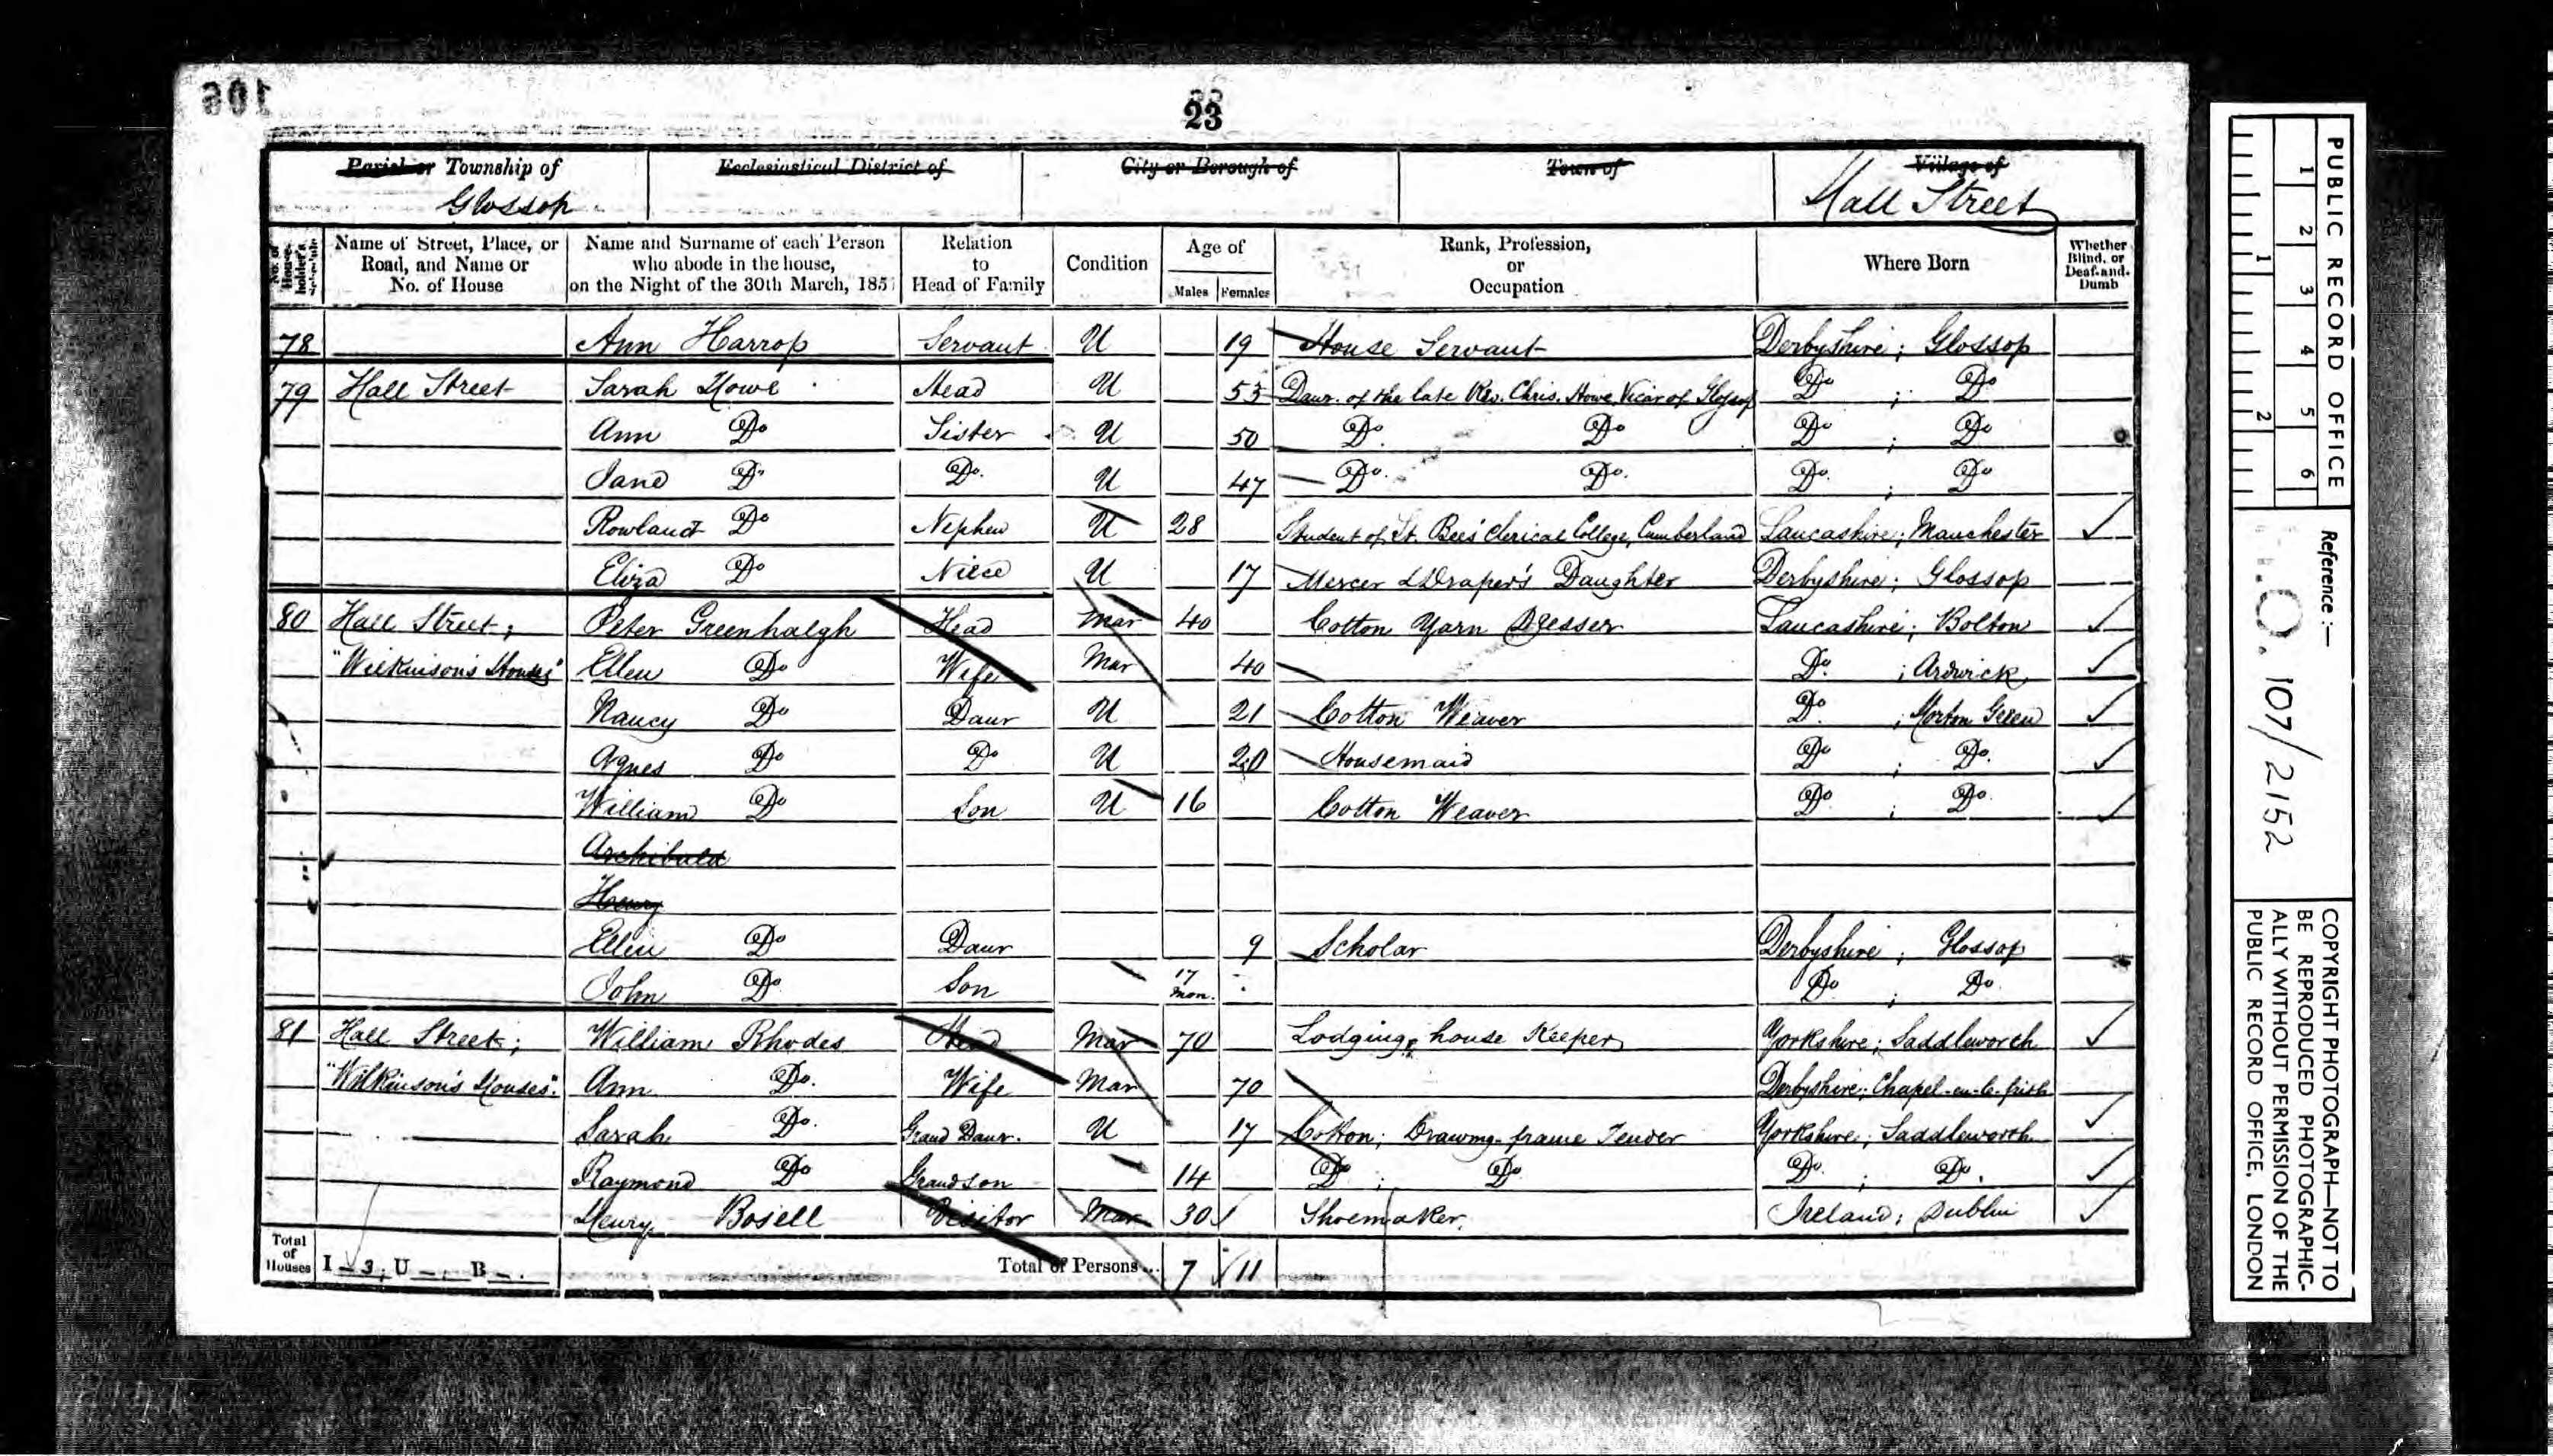 106
23
Parish or Township of
Glossop
Ecclesiastical District of
City or Borough of
Town of
Village of
Hall Street
No. of House-holder's Schedule
Name of Street, Place, or Road, and Name or No. of House
Name and Surname of each Person who abode in the house, on the Night of the 30th March, 1851
Relation to Head of Family
Condition
Age of
Males Females
Rank, Profession, or Occupation
Where Born
Whether Blind, or Deaf-and-Dumb
78 Ann Harrop Servant U 19 House Servant Derbyshire; Glossop
79 Hall Street Sarah Howe Head U 53 Daur. of the late Rev. Chris. Howe, Vicar of Glossop Do ; Do
Ann Do Sister U 50 Do. Do Do ; Do
Jane Do Do. U 47 Do. Do. Do. ; Do
Rowland Do Nephew U 28 Student of St. Bees' Clerical College, Cumberland Lancashire; Manchester
Eliza Do Niece U 17 Mercer & Draper's Daughter Derbyshire; Glossop
80 Hall Street; Peter Greenhalgh Head Mar 40 Cotton Yarn Dresser Lancashire; Bolton
"Wilkinson's Houses" Ellen Do Wife Mar 40 Do. ; Ardwick
Nancy Do Daur U 21 Cotton Weaver Do. ; Morton Green
Agnes Do Do U 20 Housemaid Do ; Do.
William Do Son U 16 Cotton Weaver Do ; Do.
Archibald
Henry
Ellen Do Daur 9 Scholar Derbyshire; Glossop
John Do Son 17 mon. Do ; Do.
81 Hall Street; William Rhodes Head Mar 70 Lodging house Keeper Yorkshire; Saddleworth
"Wilkinson's Houses". Ann Do. Wife Mar 70 Derbyshire; Chapel-en-le-frith
Sarah Do. Grand Daur. U 17 Cotton; Drawing-frame Tenter Yorkshire; Saddleworth
Raymond Do Grandson 14 Do ; Do Do. ; Do.
Henry Bosell Visitor Mar 30 Shoemaker. Ireland; Dublin
Total of Houses I 3; U — B —.
Total of Persons... 7 11
PUBLIC RECORD OFFICE
1 2 3 4 5 6
1 2
Reference :—
H.O. 107/2152
COPYRIGHT PHOTOGRAPH—NOT TO
BE REPRODUCED PHOTOGRAPHIC-
ALLY WITHOUT PERMISSION OF THE
PUBLIC RECORD OFFICE, LONDON